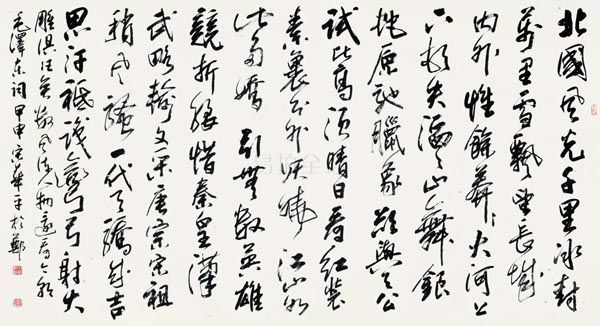 北國风光千里冰封
萬里雪飄望長城
内外惟餘莽莽大河上
下頓失滔滔山舞銀
蛇原馳臘象欲與天公
試比高須晴日看紅裝
素裹分外妖嬈江山如
此多嬌引無數英雄
競折腰惜秦皇漢
武略輸文采唐宗宋祖
稍风騷一代天驕成吉
思汗祇識彎弓射大
雕俱往矣數风流人物還看今朝
毛澤東詞甲申於鄭